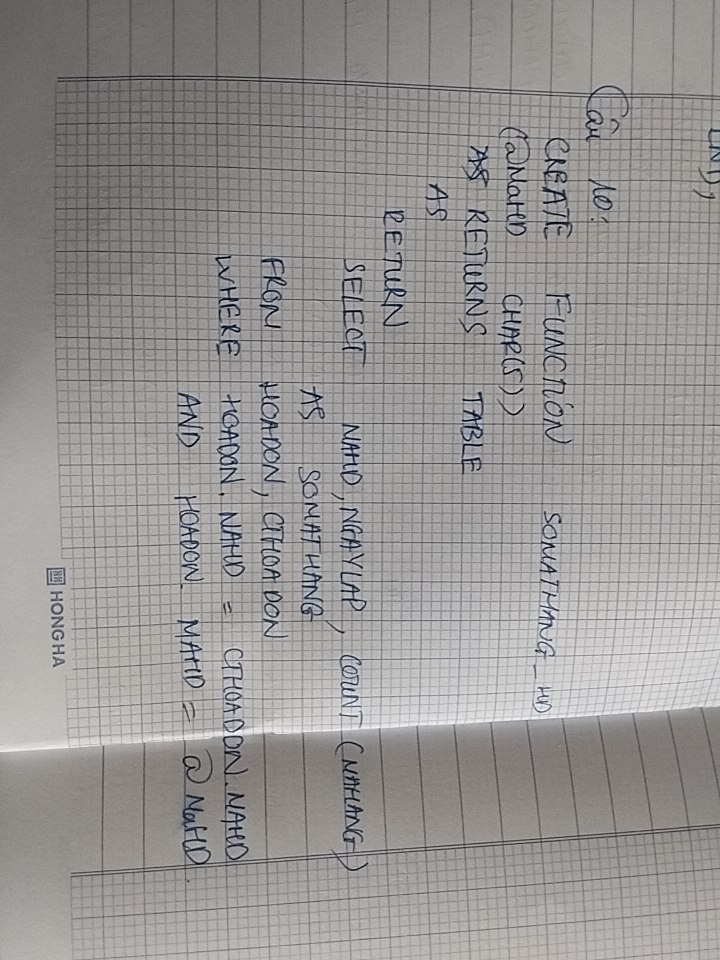 Câu 10:
CREATE FUNCTION SOMATHANG_HD
(@MaHD CHAR(5))
RETURNS TABLE
AS
RETURN
SELECT MAHD, NGAYLAP, COUNT (MAHANG)
AS SOMATHANG
FROM HOADON, CTHOADON
WHERE HOADON.MAHD = CTHOADON.MAHD
AND HOADON.MAHD = @MaHD.
HONGHA